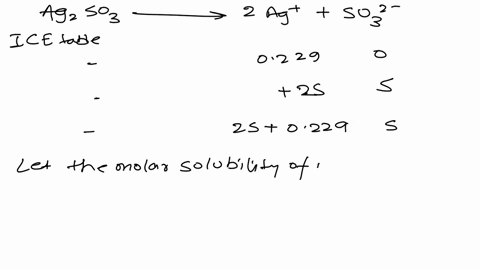 Ag₂SO₃ ⟶ 2 Ag⁺ + SO₃²⁻
ICE table
- 0.229 0
- +2S S
- 2S + 0.229 S
Let the molar solubility of